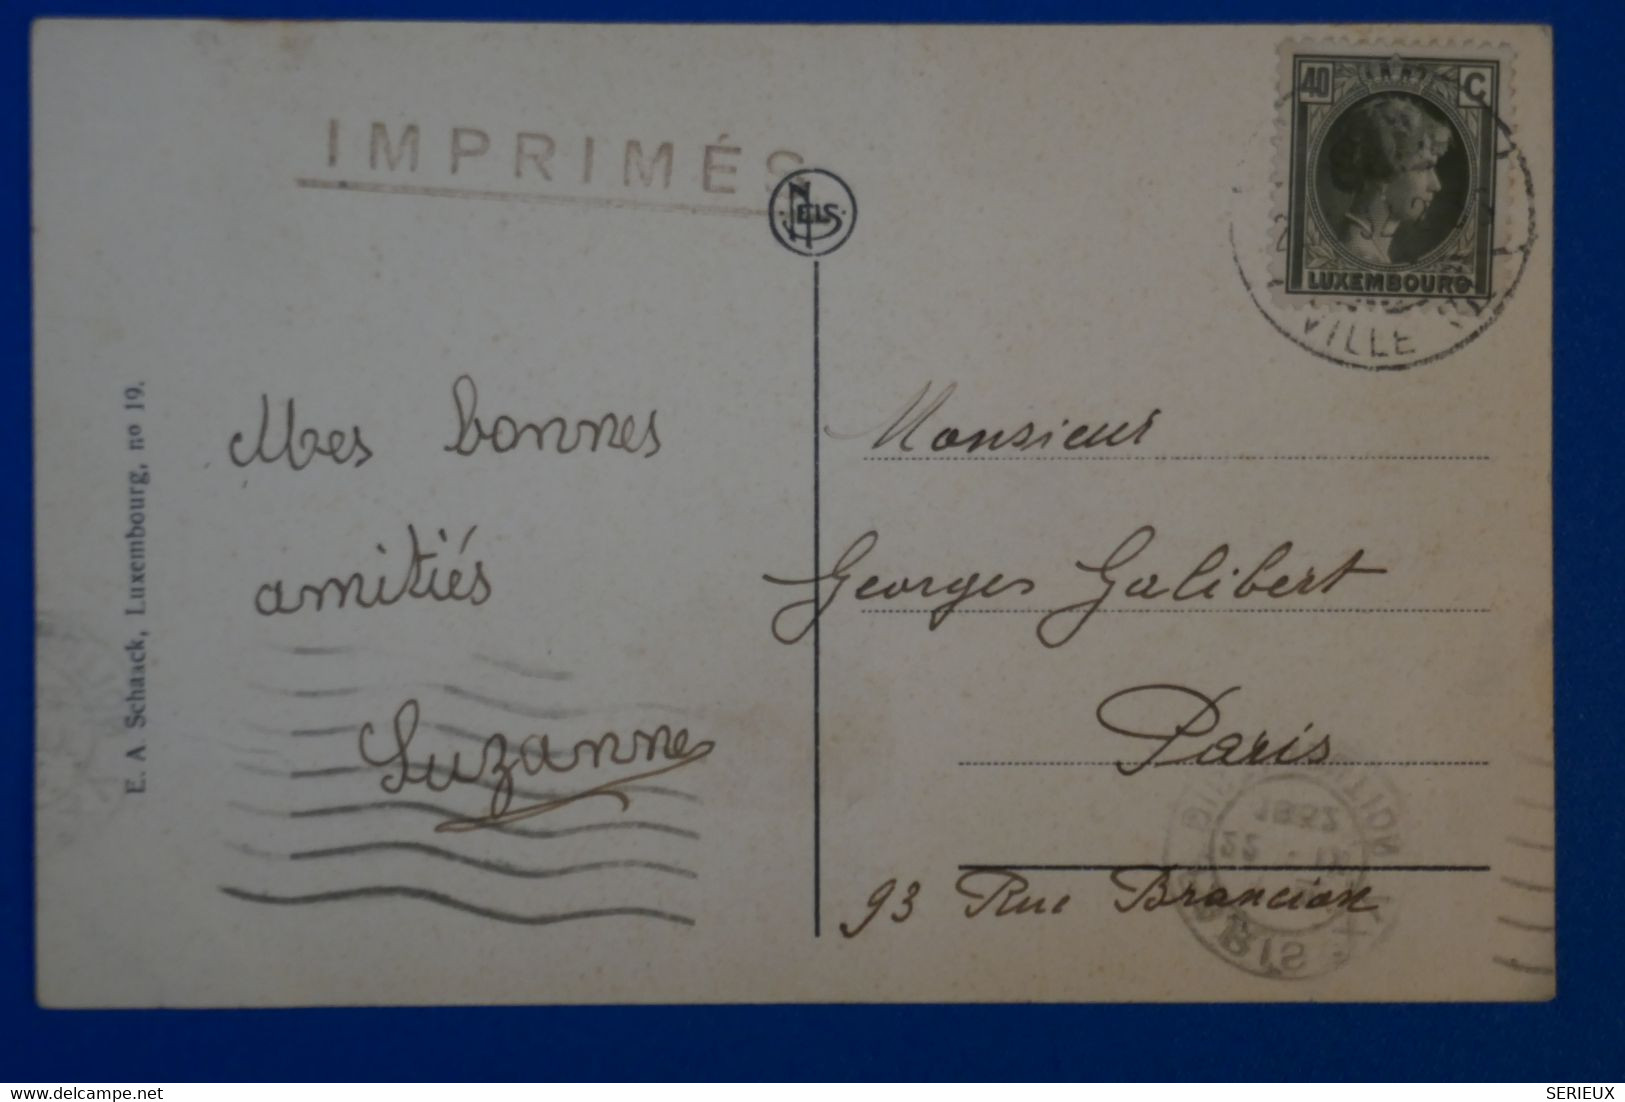 IMPRIMÉS
NELS
40 C.
LUXEMBOURG
VILLE
E. A Schaack, Luxembourg, nº 19.
Mes bonnes
amitiés
Suzanne
Monsieur
Georges Galibert
Paris
93 Rue Brancion
1932
PARIS
SERIEUX